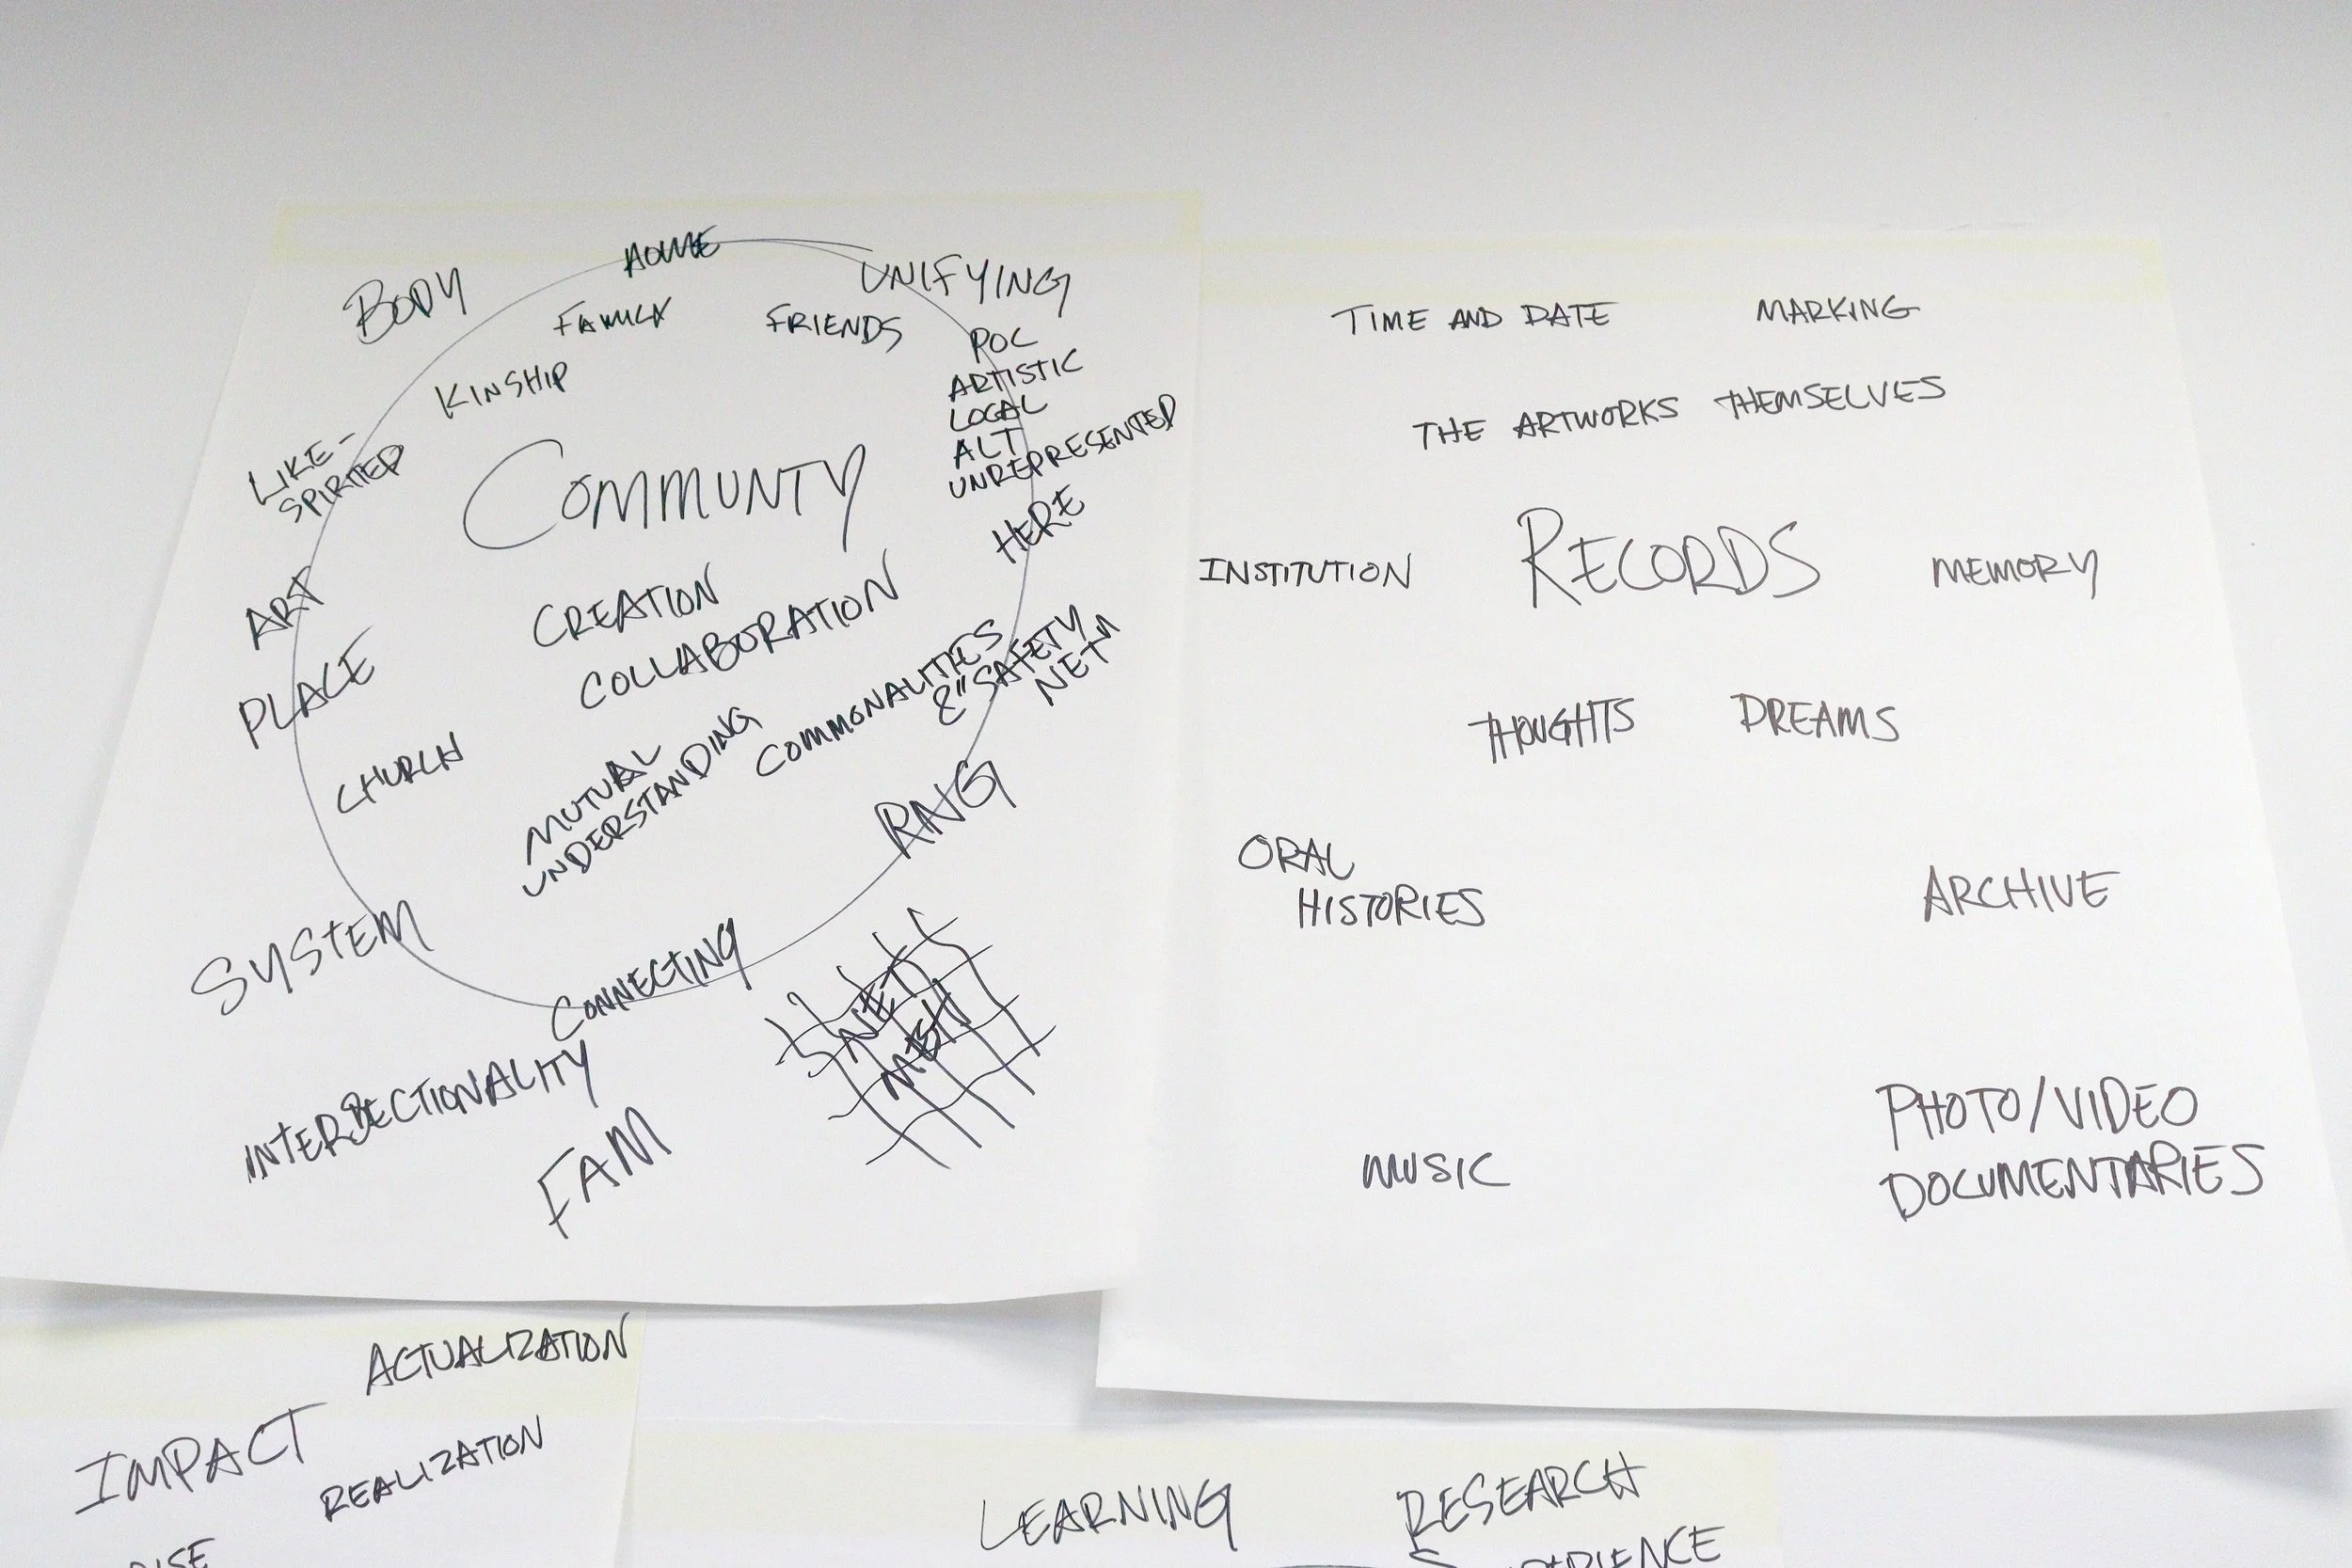 BODY
HOME
UNIFYING
FAMILY
FRIENDS
KINSHIP
POC
ARTISTIC
LOCAL
ALT
UNREPRESENTED
LIKE-
SPIRITED
COMMUNTY
HERE
ART
CREATION
COLLABORATION
PLACE
COMMONALITIES
& "SAFETY
NET"
CHURCH
MUTUAL
UNDERSTANDING
RNG
SYSTEM
CONNECTING
NET
MESH
INTERSECTIONALITY
FAM
TIME AND DATE MARKING
THE ARTWORKS THEMSELVES
INSTITUTION RECORDS MEMORY
THOUGHTS DREAMS
ORAL
HISTORIES
ARCHIVE
MUSIC
PHOTO/VIDEO
DOCUMENTARIES
ACTUALIZATION
IMPACT
REALIZATION
LEARNING
RESEARCH